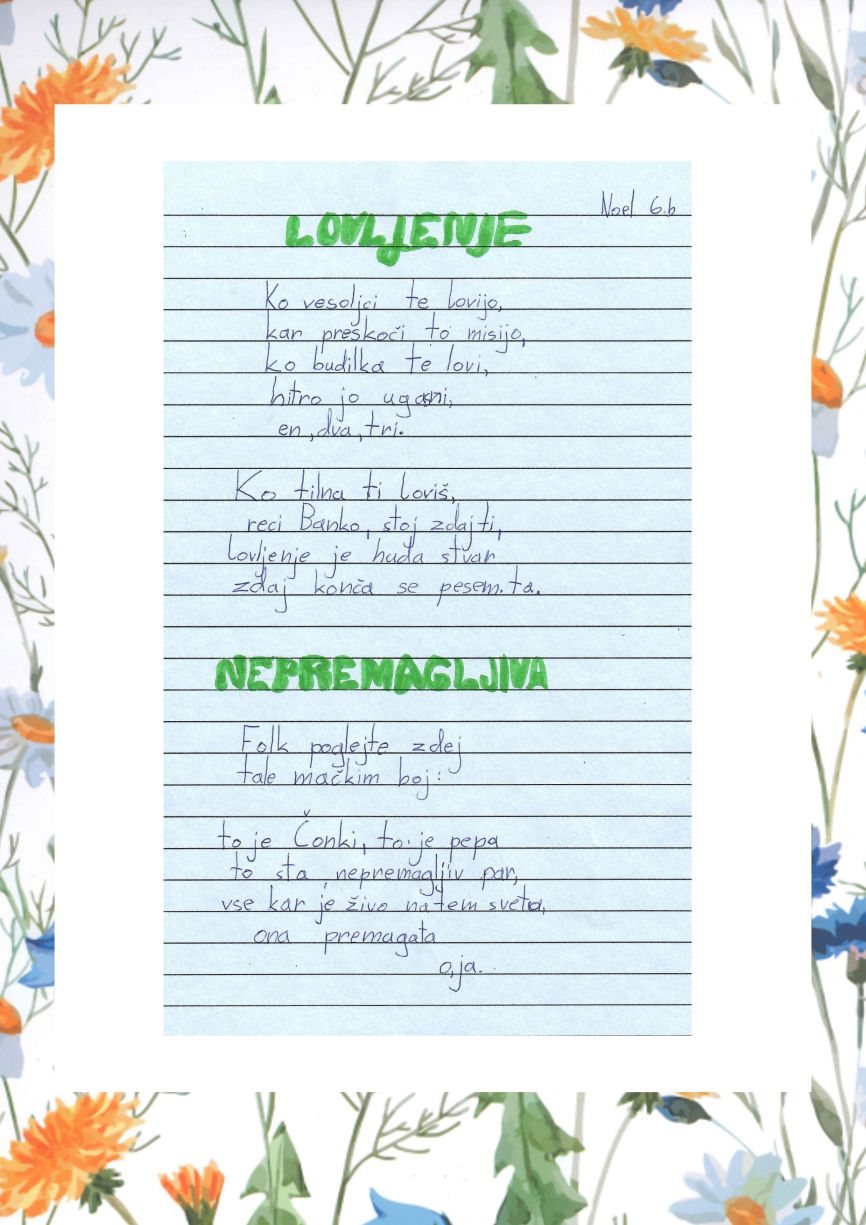 Noel 6.b
LOVLJENJE
Ko vesoljci te lovijo,
kar preskoči to misijo,
ko budilka te lovi,
hitro jo ugani,
en, dva, tri.
Ko tilna ti loviš,
reci Banko, stoj zdaj ti,
lovljenje je huda stvar
zdaj konča se pesem.ta.
NEPREMAGLJIVA
Folk poglejte zdej
tale mačkim boj:
to je Čonki, to je pepa
to sta nepremagljiv par,
vse kar je živo na tem svetu,
ona premagata
o, ja.